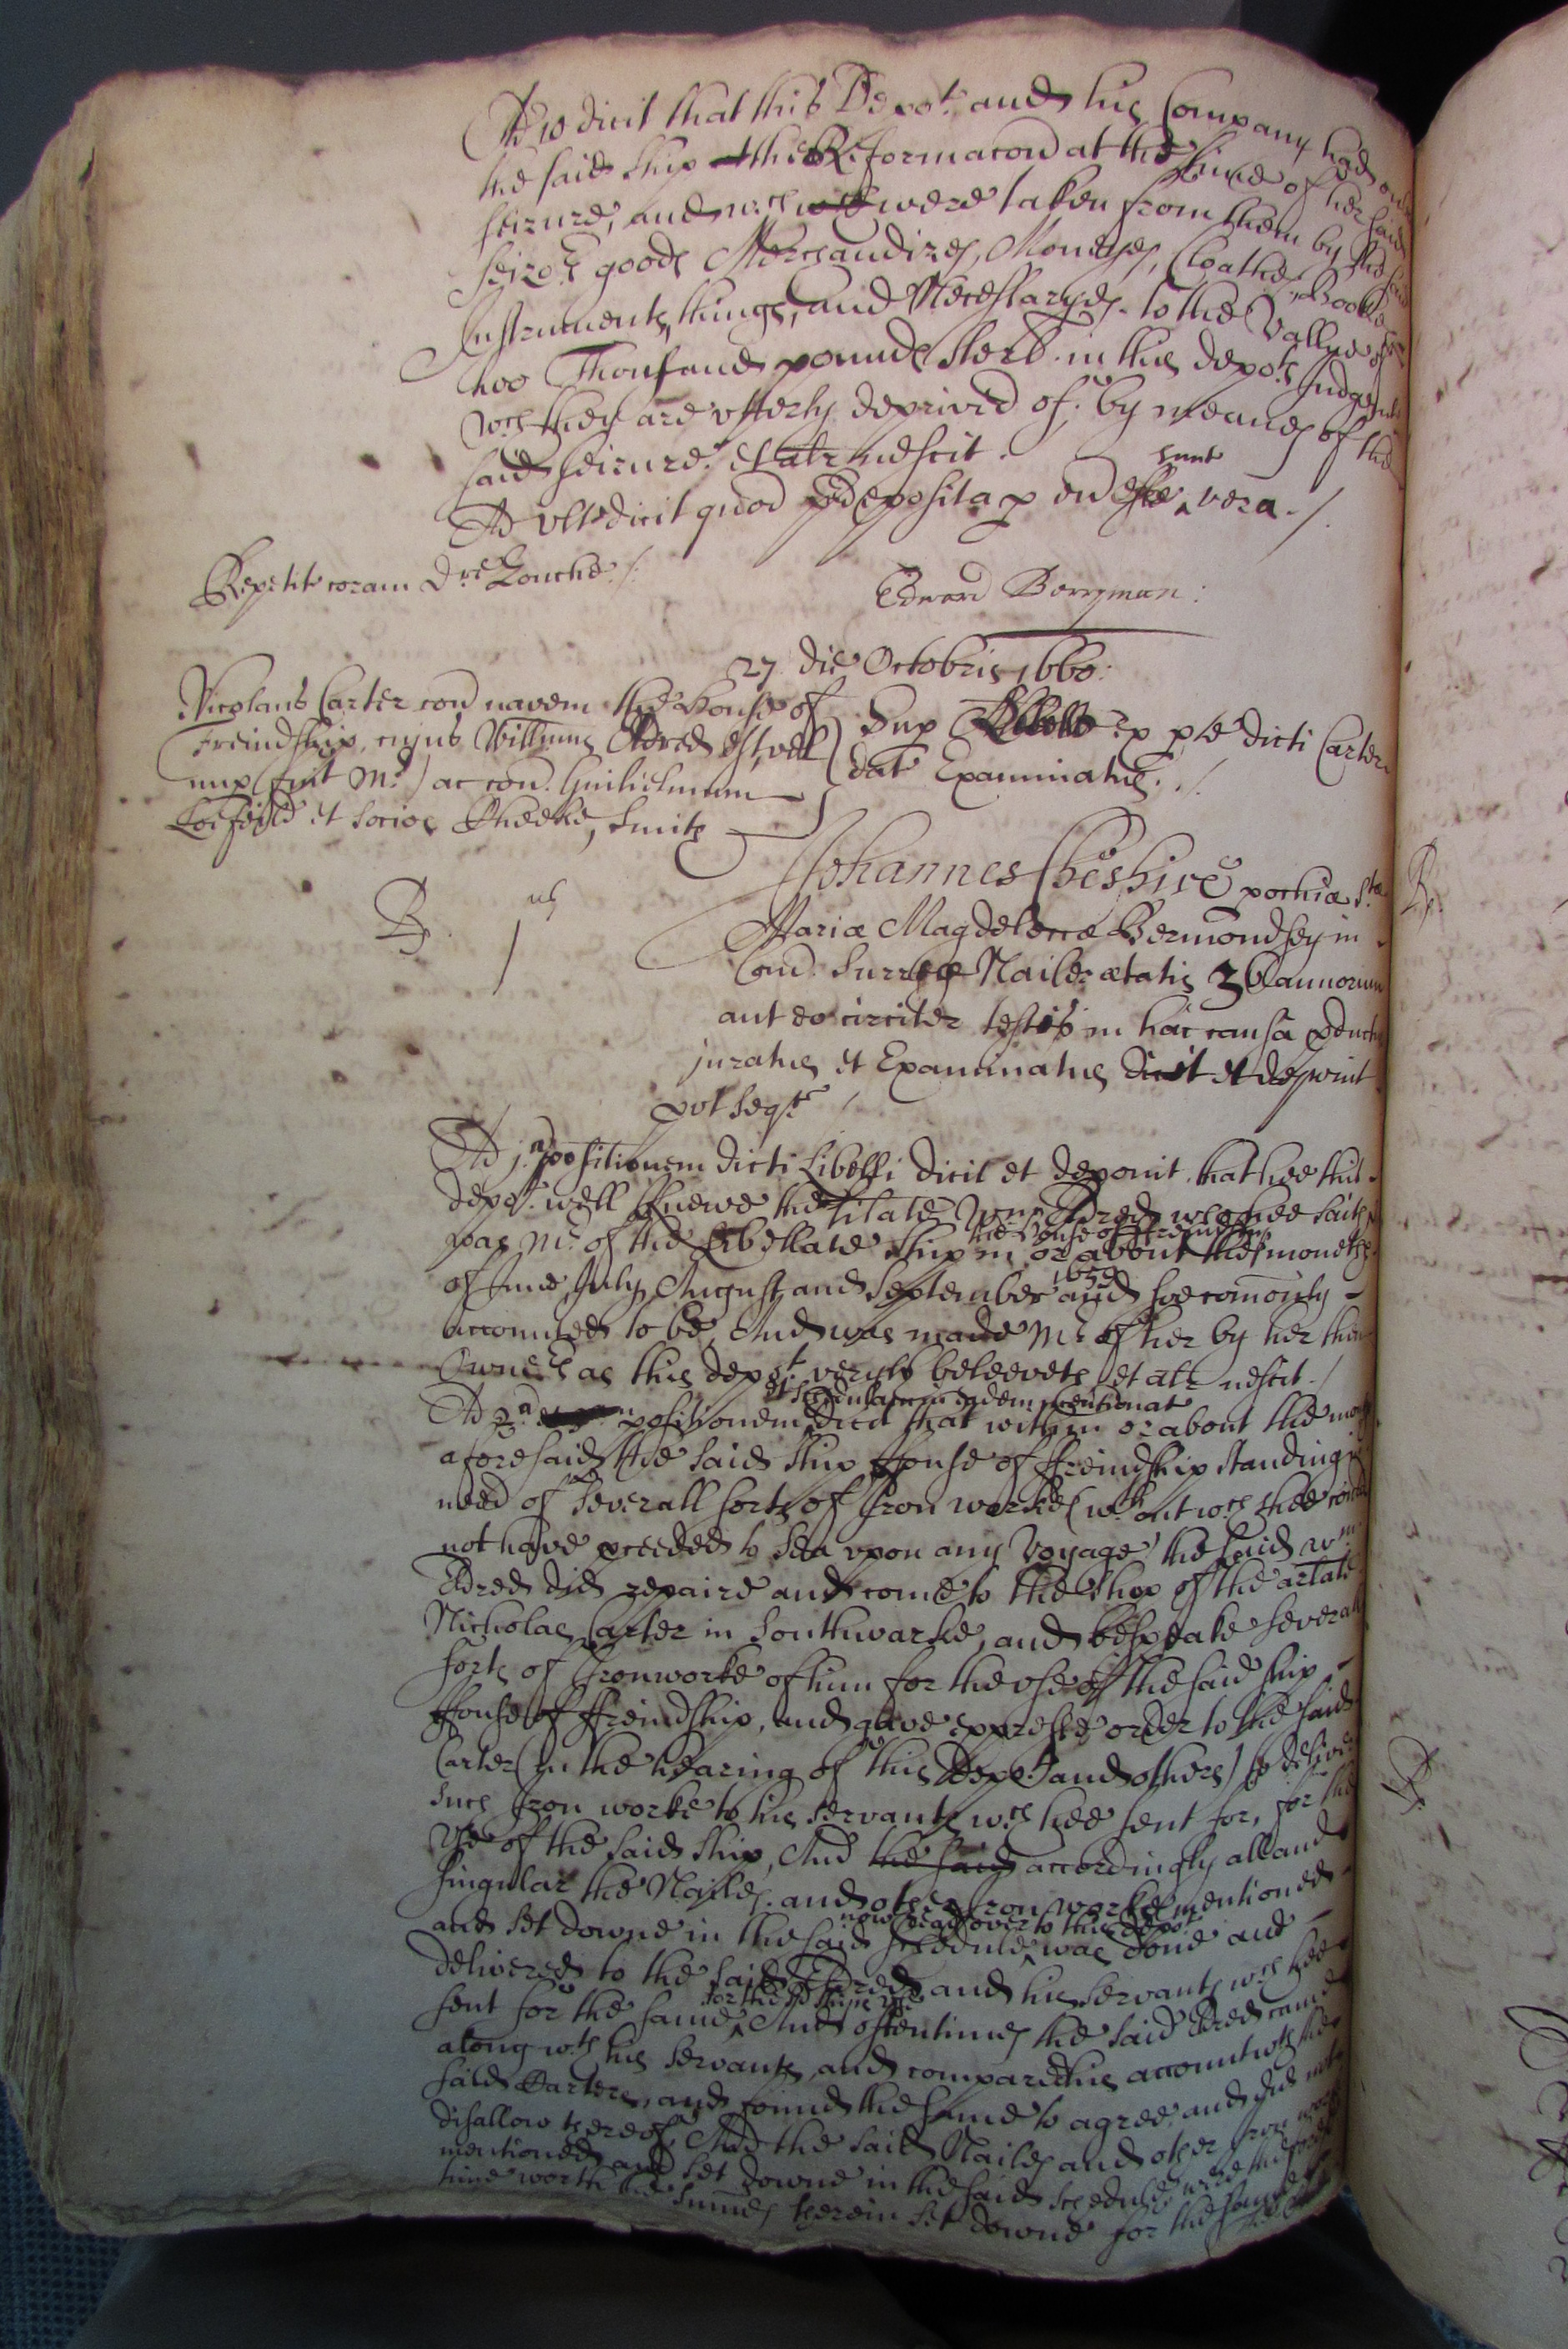 Ad 10 dicit that this Depot. and his Company had
the said ship the Reformacon at the time of her said
seizure, and wch were taken from them by the said
seizors goods Merchandizes, Moneyes, Cloathes, Bookes
Instruments, things, and Necessaryes to the Vallue of
two Thousand pounds sterl. in this depots Judgmt
wch they are utterly deprived of, by meanes of the
said seizure. et alr nescit.
Ad ult. dicit quod pdeposita p eu sunt vera. /.
Repetit coram Dre Zouche. /.
Edward Berryman:
27 die Octobris 1660:
Nicolaus Carter con navem the House of
Freindship, cujus Willmus Eldred est, vel
nup fuit Mr.) ac con. Guilielmum
et socios Cheeke, Smith
Sup Libello ex pte dicti Carter
dat Examinatus. /.
Rp. 1us
Johannes Cheshire pochiæ Stæ
Mariæ Magdelenæ Bermondsey in
Com. Surriæ Nailer ætatis 36 annorum
aut eo circiter testis in hac causa pductus
juratus et Examinatus dicit et deponit
prout sequr
Ad j.am positionem dicti Libelli dicit et deponit that hee this
depot. well knewe the Wm Eldred who hee saith
was Mr. of the Libellate ship the House of Freindship in or about the moneths
of June, July, August and September 1659 and soe comonly
accounted to be, And was made Mr. of her by her then
Owners as this depot. veryly beleeveth et alr nescit. /
Ad 2.am positionem et Schedulam in eadem mentionat dicit that within or about the moneths
aforesaid the said ship House of ffreindship standing in
need of severall sorts of Iron workes (wthout wch shee could
not have pceeded to Sea upon any Voyage the said Wm
Eldred did repaire and come to the shop of the arlate
Nicholas Carter in Southwarke, and bespeake severall
sorts of Ironworke of him for the use of the said ship
House of ffreindship, and gave expresse order to the said
Carter (In the hearing of this Depot. and others) to deliver
such Iron worke to his servants wch hee sent for, for the
use of the said ship, And the said accordingly all and
singular the Nailes and other Iron worke mentioned
and set downe in the said schedule now read over to this depot was done and
delivered to the said Eldred and his servants wch hee
sent for the same for the sd ships use, And oftentimes the said Eldred came
along wth his servants, and compared his account wth the
said Carters, and found the same to agree, and did not
disallow thereof, And the said Nailes and other Iron worke
mentioned and set downe in the said schedule were
time worth the summes therein set downe for the same